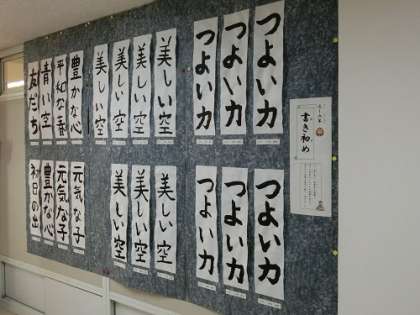 書き初め
つよい力
つよい力
つよい力
美しい空
美しい空
美しい空
美しい空
豊かな心
平和な春
青い空
友だち
つよい力
つよい力
つよい力
美しい空
美しい空
美しい空
元気な子
元気な子
豊かな心
初日の出